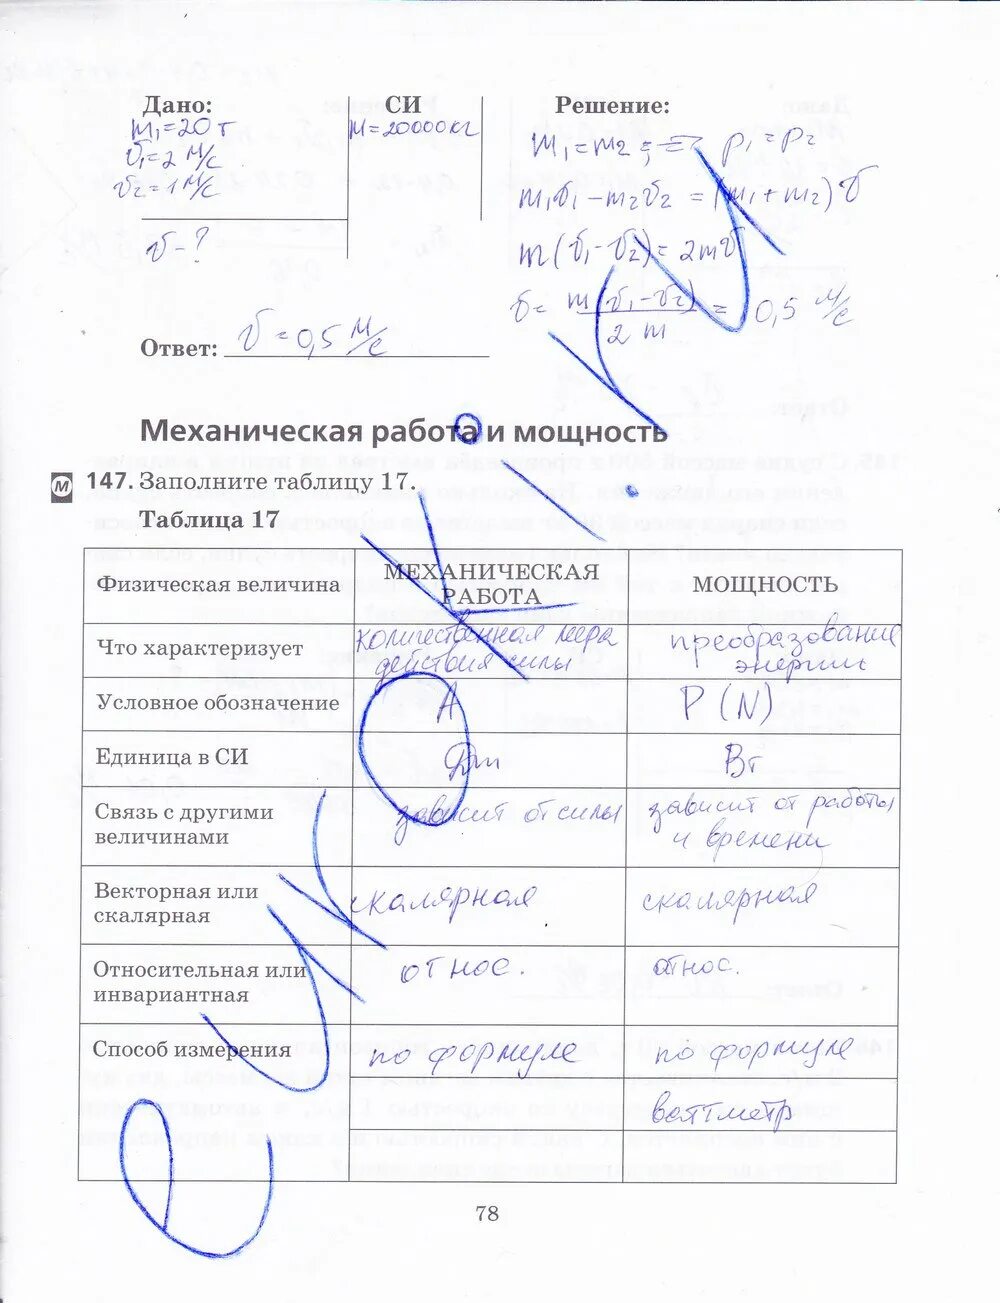 Дано:
СИ
Решение:
m₁=20т
m=20000кг
m₁=m₂ ; => p₁=p₂
v₁=2 м/с
v₂=1 м/с
m₁v₁-m₂v₂=(m₁+m₂)v
v-?
m(v₁-v₂)=2mv
v= m(v₁-v₂) / 2m = 0,5 м/с
Ответ: v=0,5 м/с
Механическая работа и мощность
М 147. Заполните таблицу 17.
Таблица 17
Физическая величина
МЕХАНИЧЕСКАЯ
РАБОТА
МОЩНОСТЬ
Что характеризует
количественная мера
действия силы
преобразование
энергии
Условное обозначение
A
P (N)
Единица в СИ
Дж
Вт
Связь с другими
величинами
зависит от силы
зависит от работы
и времени
Векторная или
скалярная
скалярная
скалярная
Относительная или
инвариантная
относ.
относ.
Способ измерения
по формуле
по формуле
ваттметр
78